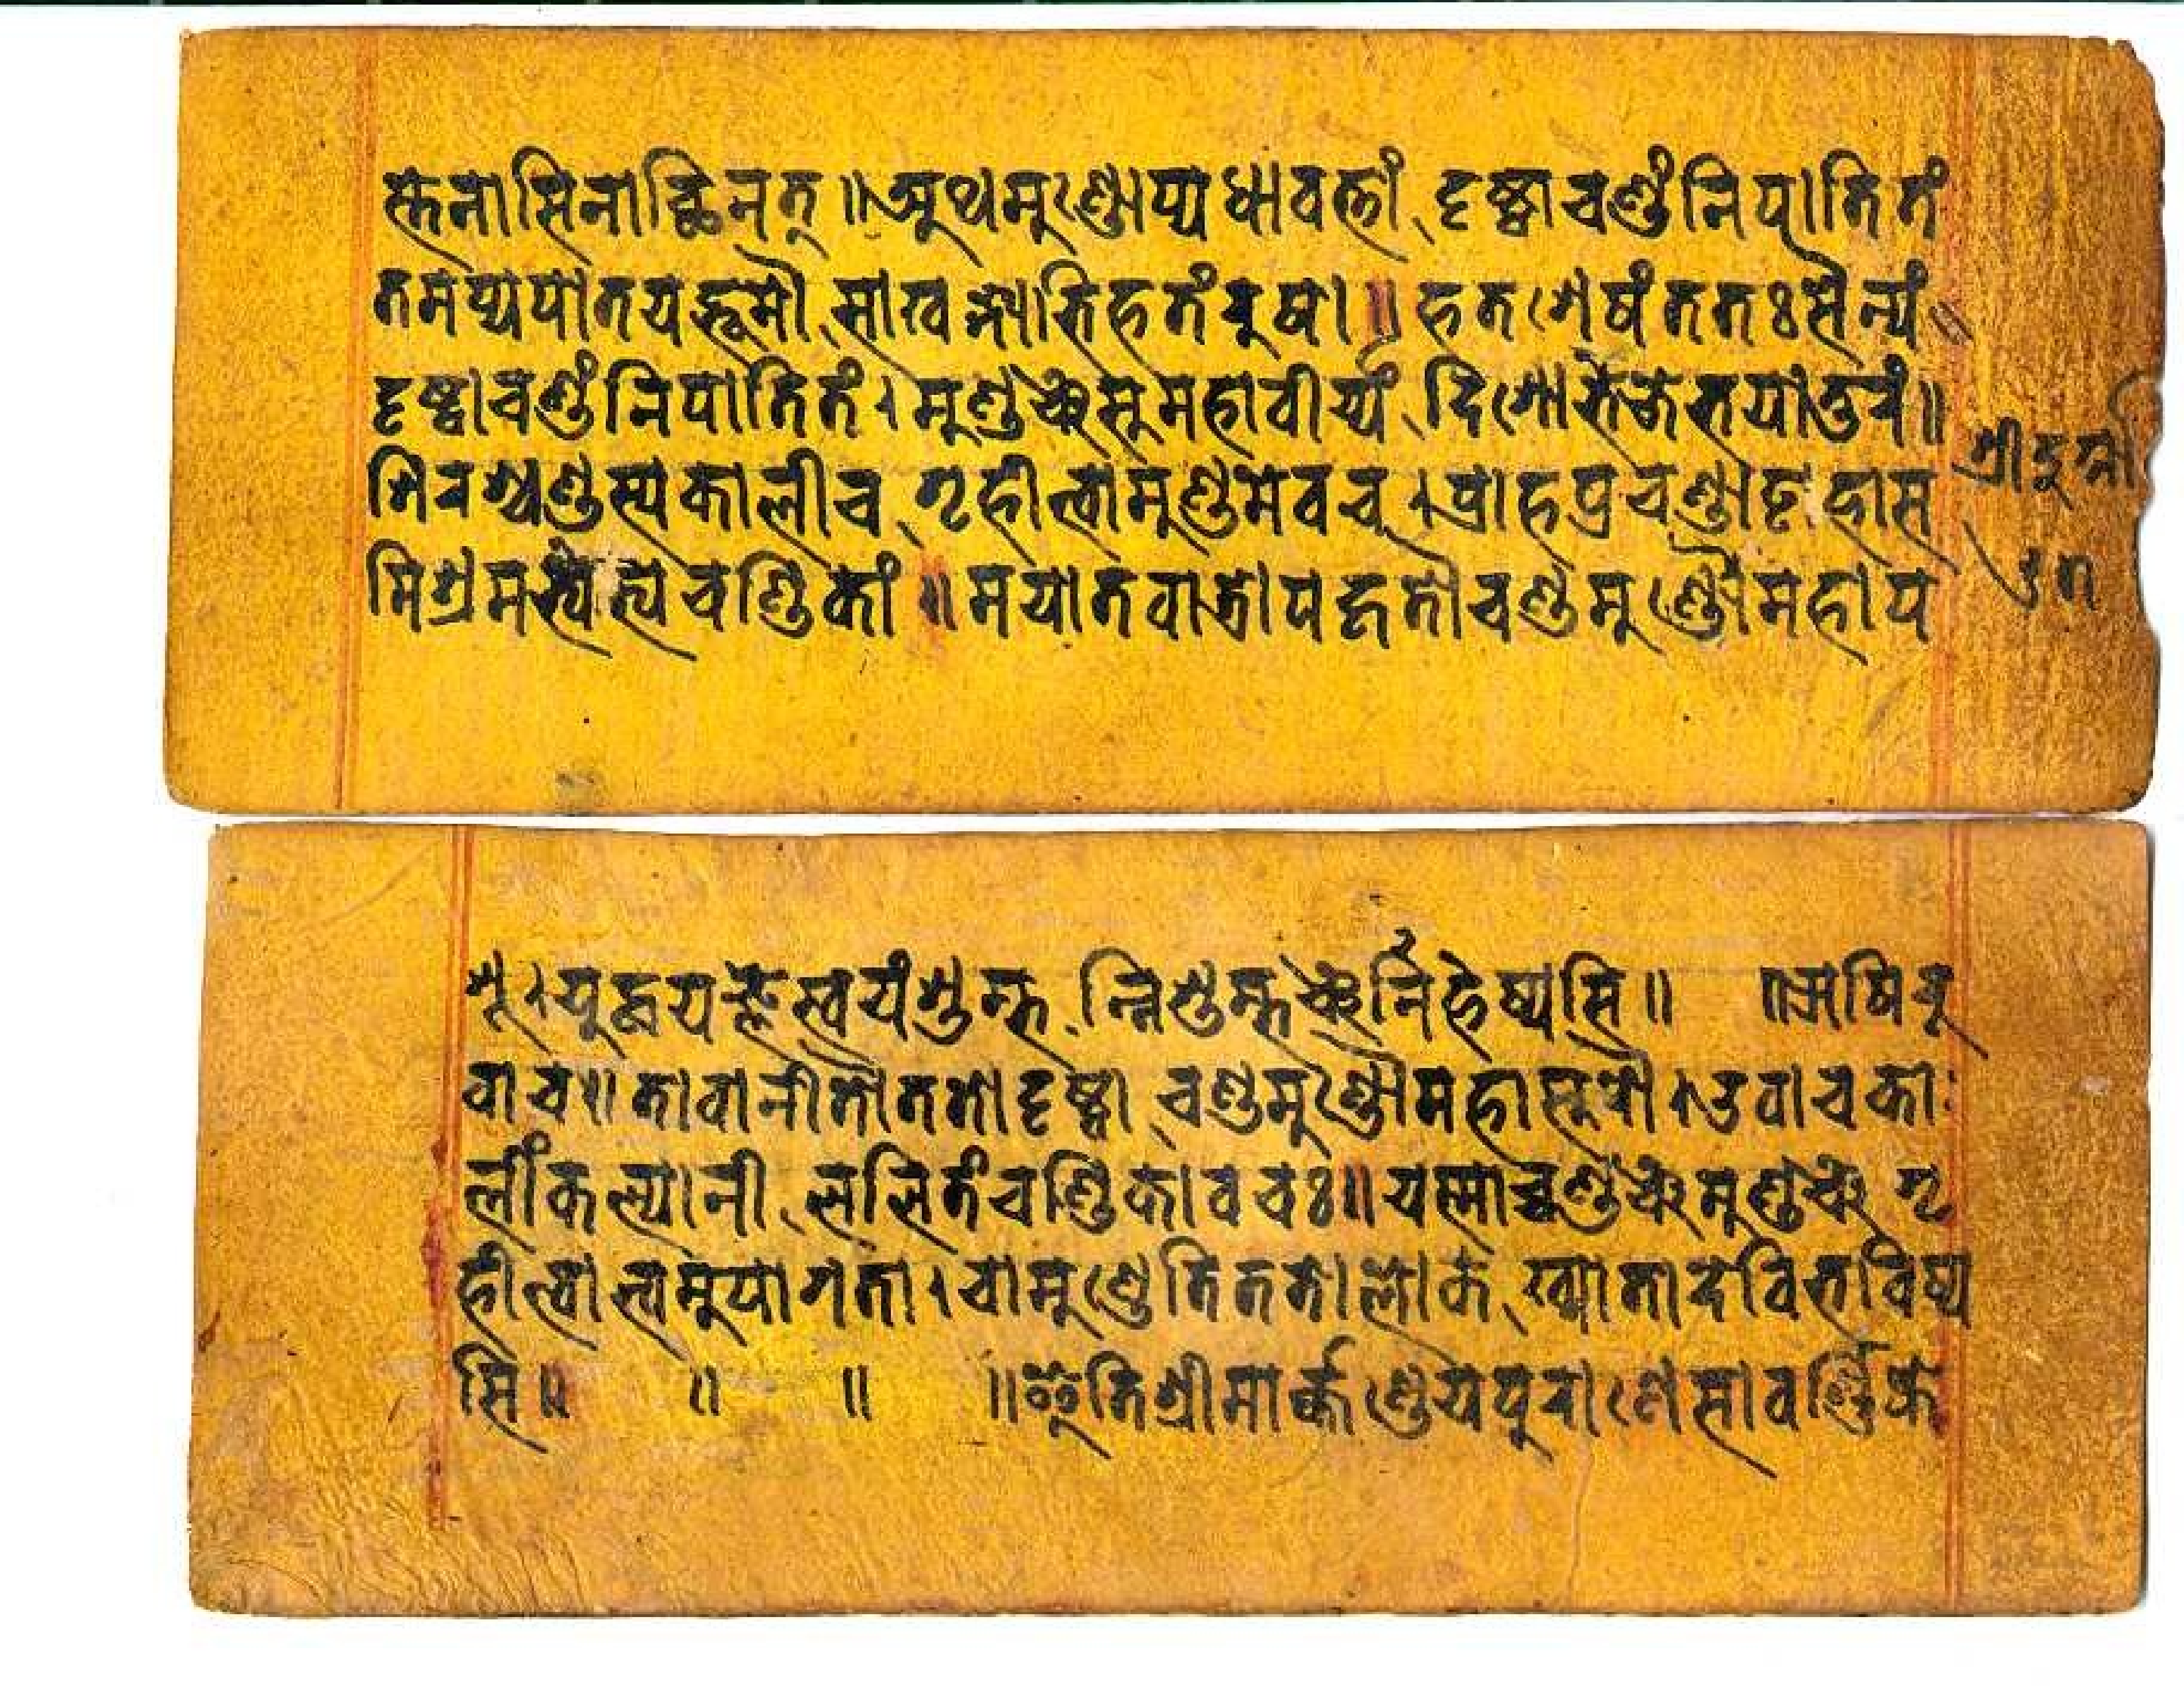 स्तेनासिनाच्छिनत् ॥ अथमुण्डोप्यधावत्तां दृष्ट्वाचण्डंनिपातितं
तमप्यपातयद्भूमौ साखड्गाभिहतंरुषा ॥ हतशेषंततःसैन्यं
दृष्ट्वाचण्डंनिपातितं । मुण्डञ्चसुमहावीर्य्यं दिशोभेजेभयातुरं ॥
शिरश्चण्डस्यकालीच गृहीत्वामुण्डमेवच । प्राहप्रचण्डाट्टहास
मिश्रमभ्येत्यचण्डिकां ॥ मयातवात्रोपहृतौचण्डमुण्डौमहाप
श्रीदुर्गा
शू । युद्धयज्ञेस्वयंशुम्भ न्निशुम्भञ्चनिहनिष्यसि ॥ ॥ ऋषिरु
वाच ॥ तावानीतौततोदृष्ट्वा चण्डमुण्डौमहासुरौ । उवाचका
लींकल्यानी ललितंचण्डिकावचः ॥ यस्माच्चण्डञ्चमुण्डञ्च गृ
हीत्वात्वमुपागता । चामुण्डेतिततोलोके ख्यातादेविभविष्य
सि ॥ ॥ ॥ ॥ इतिश्रीमार्कण्डेयपुराणेसावर्ण्णिके